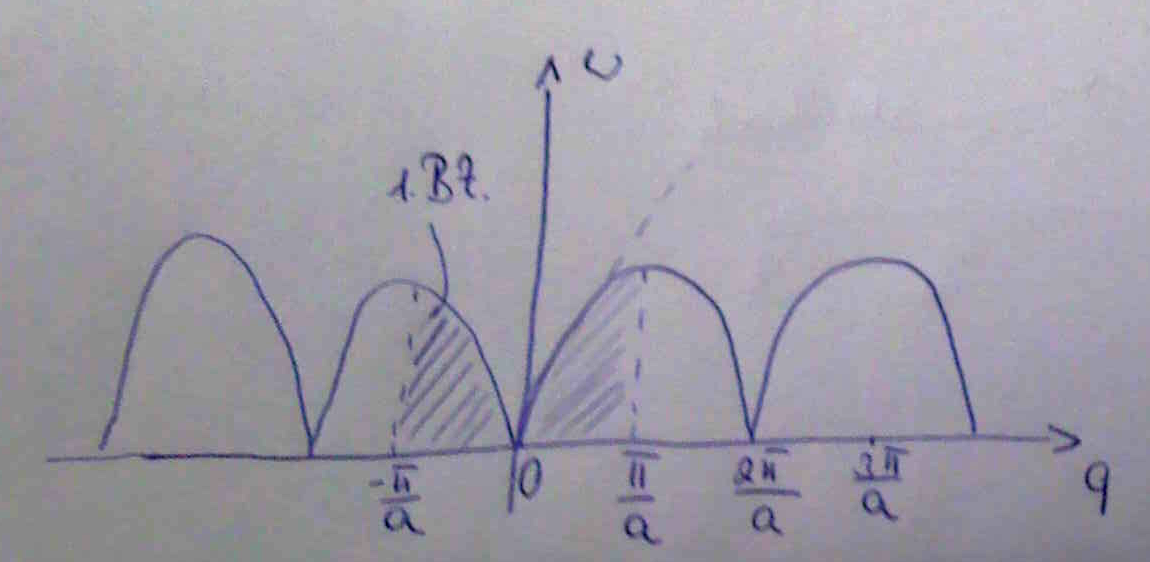 ω
1.BZ.
-π/a
0
π/a
2π/a
3π/a
q